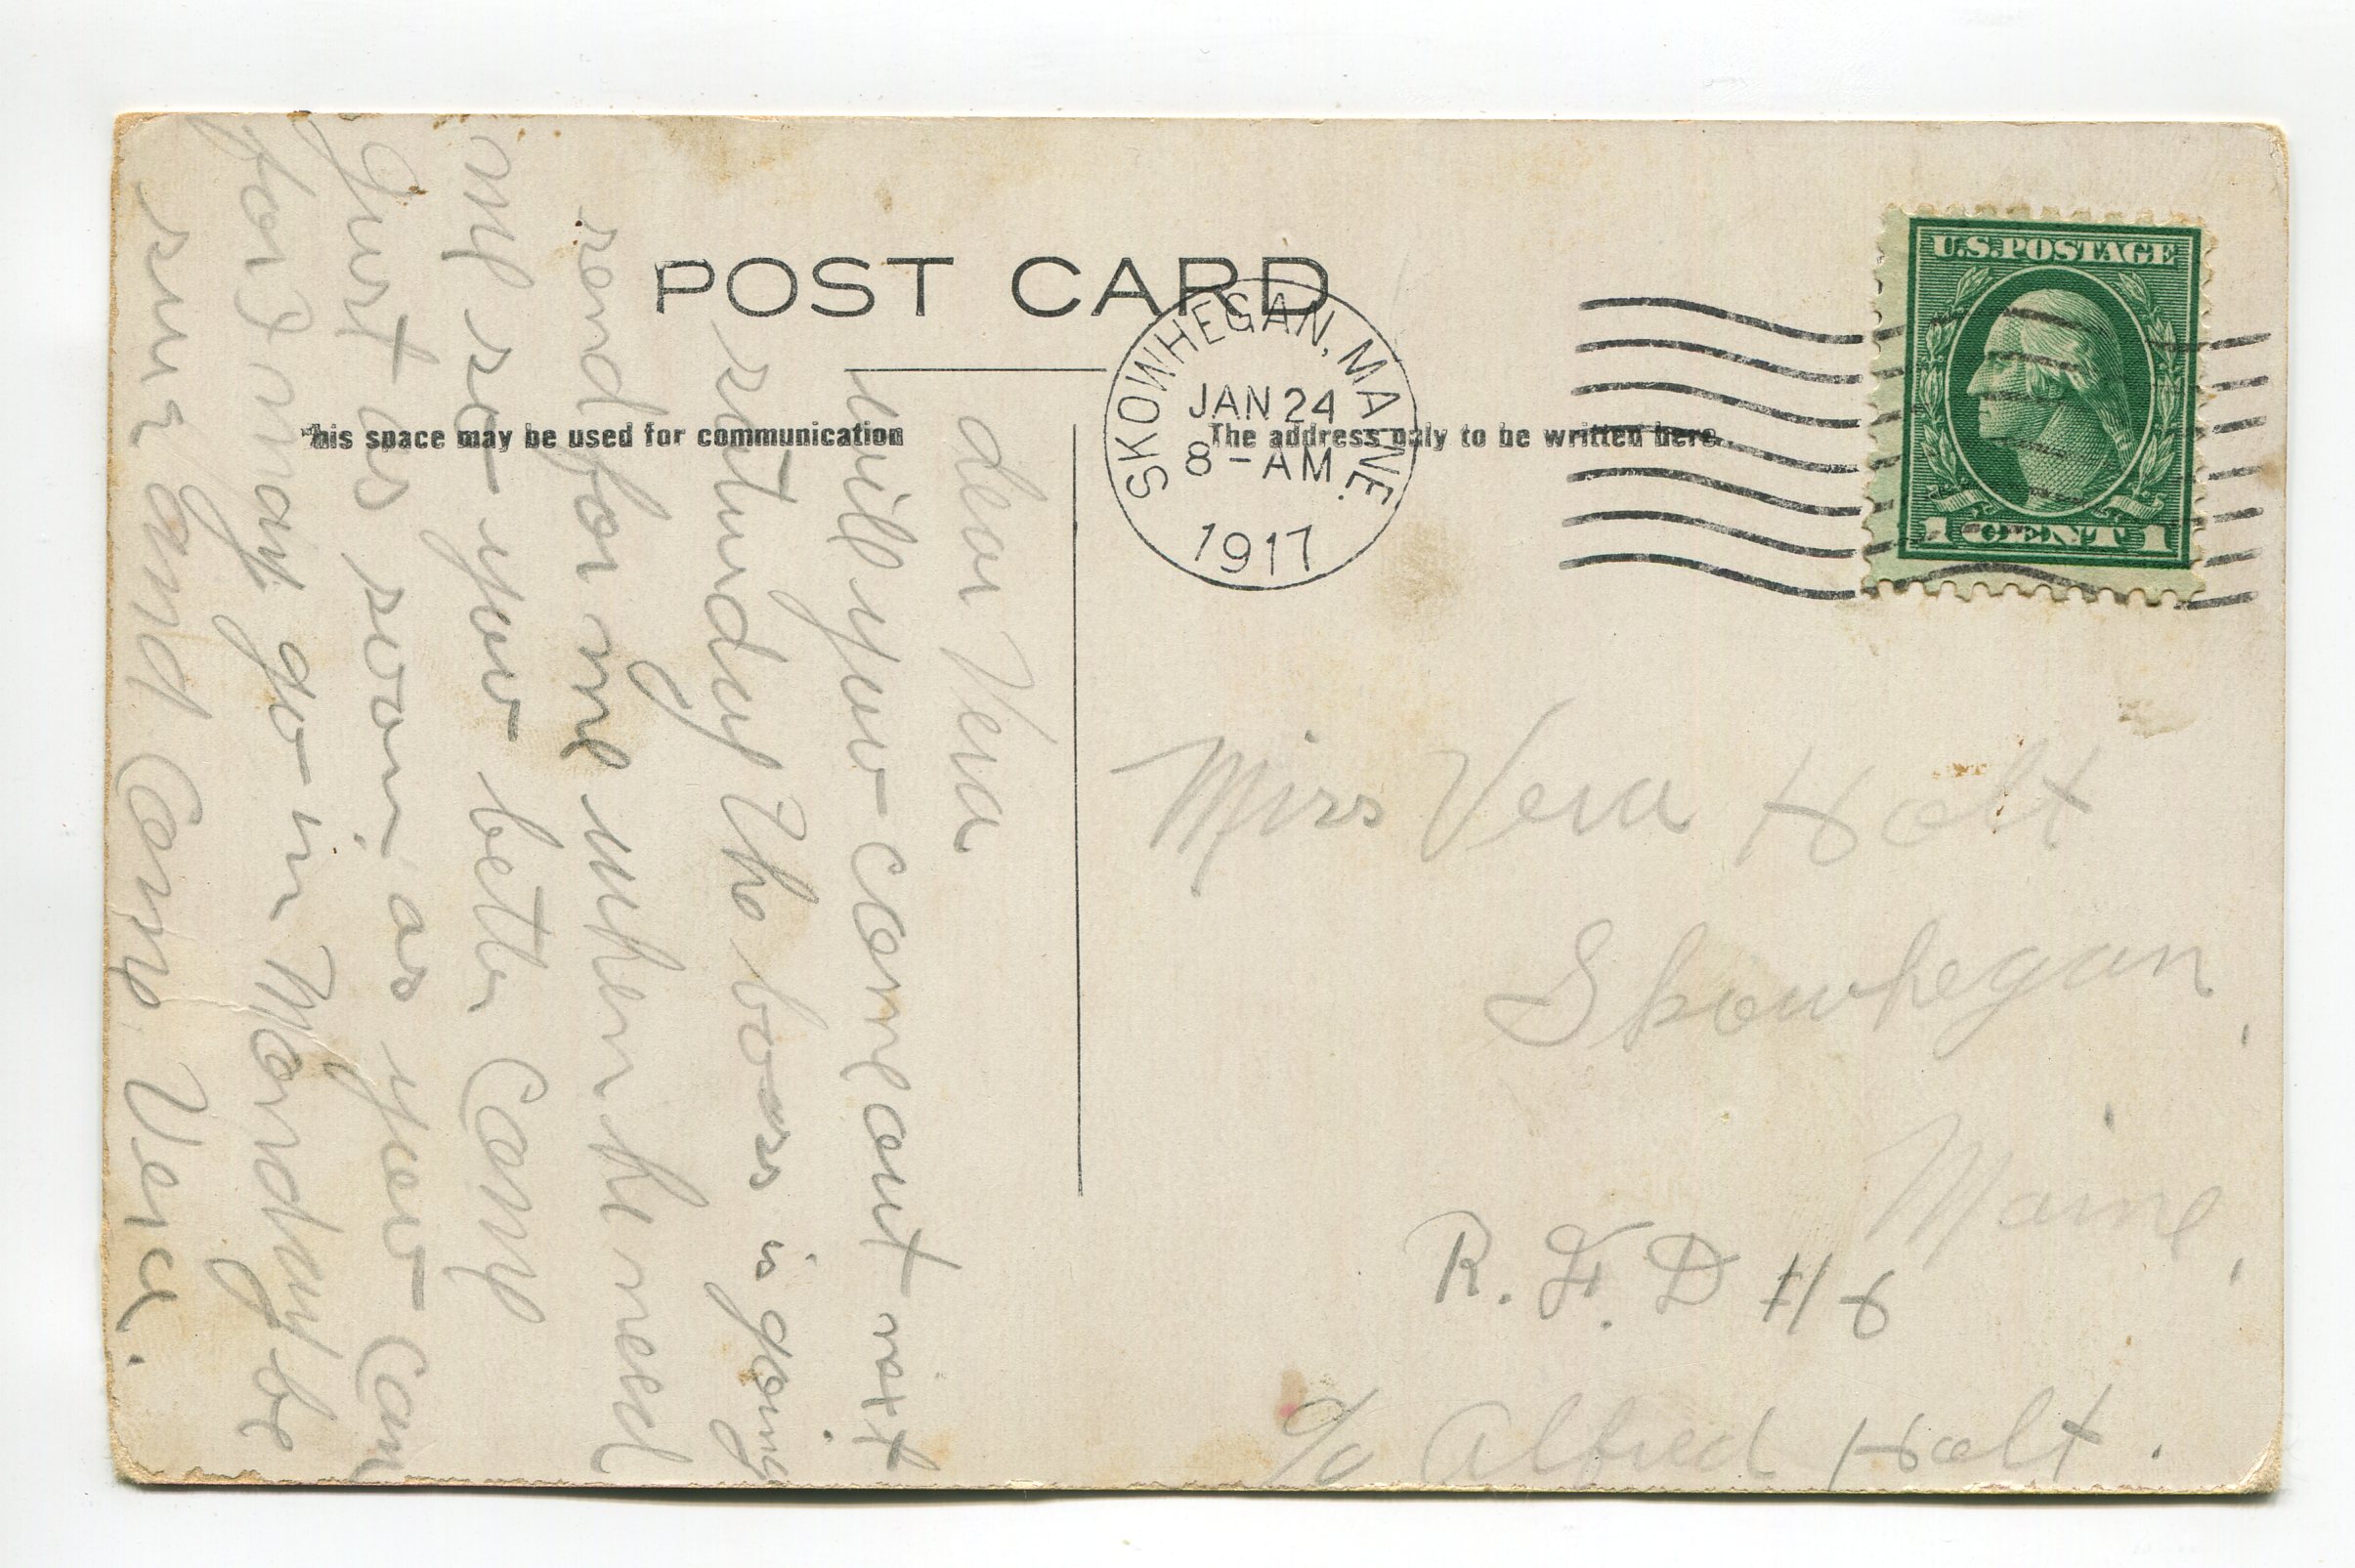 POST CARD
This space may be used for communication
The address only to be written here.
SKOWHEGAN, MAINE.
JAN 24
8-AM
1917
U.S. POSTAGE
1 CENT 1
dear Vera
will you come out next
saturday the boss is going
send for me when he need
me so you better come
Just as soon as you can
for I may go in Monday be
sur and come Vera.
Miss Vera Holt
Skowhegan,
Maine,
R. F. D # 6
c/o Alfred Holt.